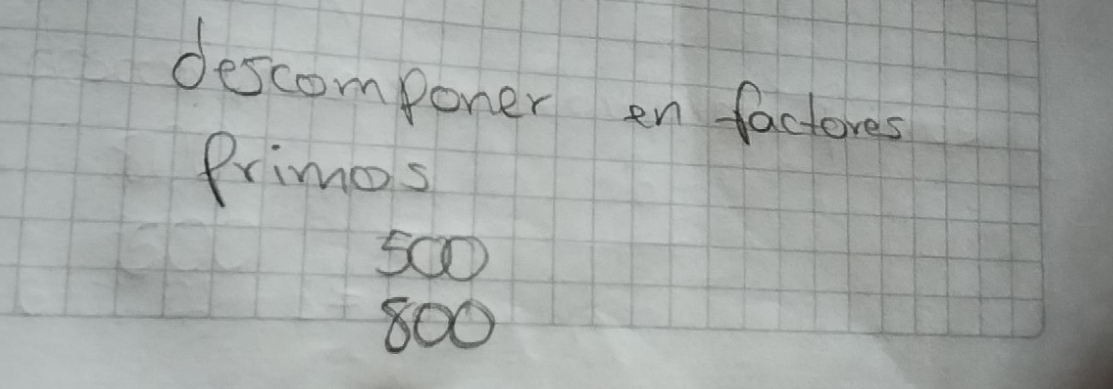 descomponer en factores
primos
500
800